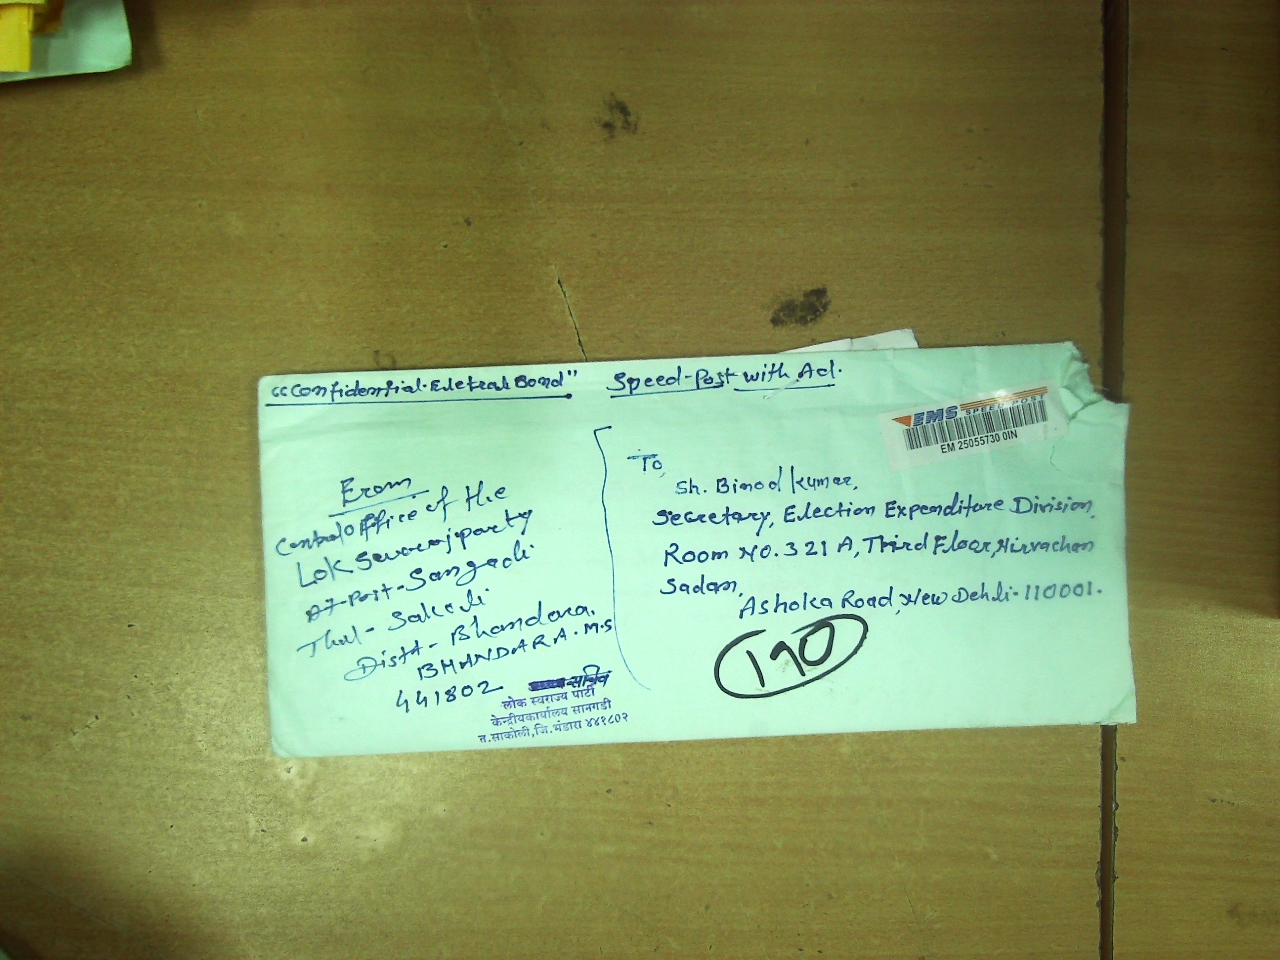 "Confidential-Eletral Bond" Speed-Post with Ad.
EMS SPEED POST
EM 25055730 0IN
From
Central Office of the
Lok Swarajparty
At-Post-Sangadi
Thal-Sakoli
Distt-Bhandara.
BHANDARA.M.S
441802
सचिव
लोक स्वराज्य पार्टी
केन्द्रीयकार्यालय सानगडी
त.साकोली,जि.भंडारा ४४१८०२
To,
Sh. Binod Kumar,
Secretary, Election Expenditure Division,
Room No. 321 A, Third Floor, Nirvachan
Sadan,
Ashoka Road, New Dehli-110001.
190